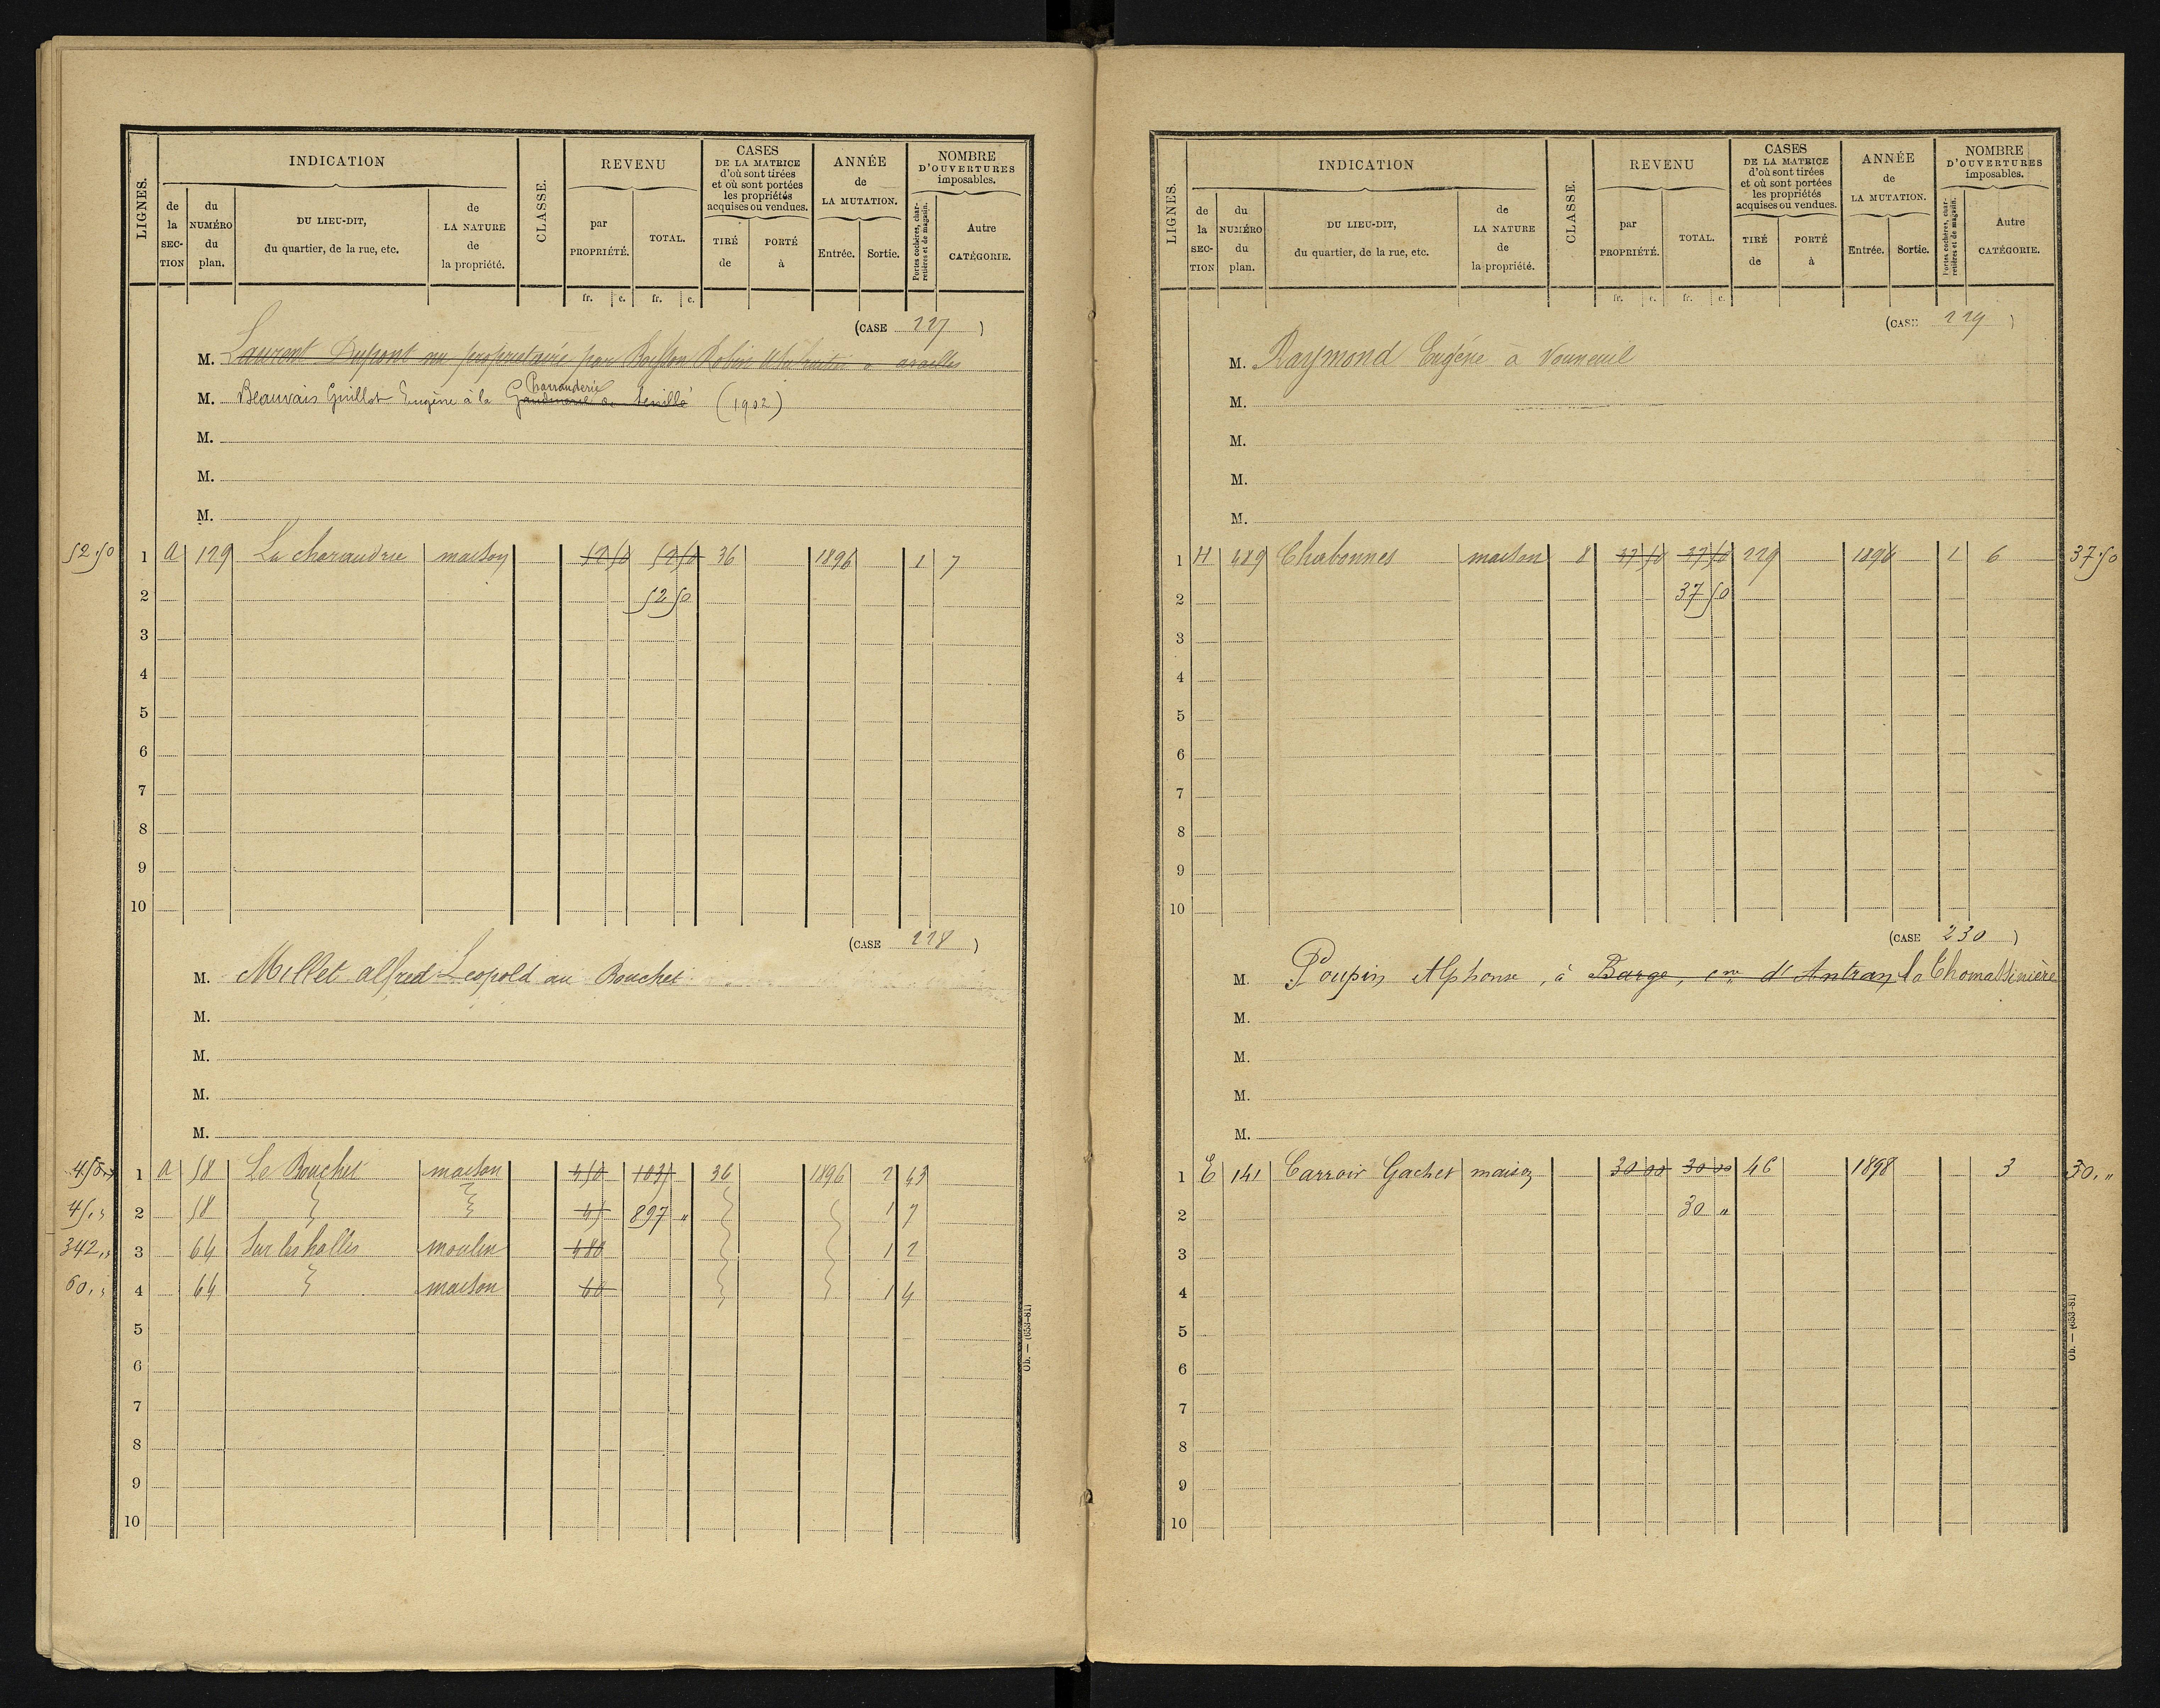 LIGNES.
INDICATION
de la SECTION
du NUMÉRO du plan.
DU LIEU-DIT, du quartier, de la rue, etc.
de LA NATURE de la propriété.
CLASSE.
REVENU
par PROPRIÉTÉ.
TOTAL.
CASES DE LA MATRICE d'où sont tirées et où sont portées les propriétés acquises ou vendues.
TIRÉ de
PORTÉ à
ANNÉE de LA MUTATION.
Entrée.
Sortie.
NOMBRE D'OUVERTURES imposables.
Portes cochères, charretières et de magasin.
Autre CATÉGORIE.
fr. c. fr. c.
(CASE 227)
M. Laurent Dupont nu propriétaire par Robin
M. Beauvais Guillot Eugène à la Charrauderie (1902)
M.
M.
M.
52.50 1 A 129 La charaudrie maison 52 50 52 50 36 1896 1 7
2 52 50
3
4
5
6
7
8
9
10
(CASE 228)
M. Millet alfred Leopold au Bouchet
M.
M.
M.
M.
450 „ 1 A 58 Le Bouchet maison 450 1035 36 1896 2 43
45 „ 2 58 45 897 „ 1 7
342 „ 3 64 Sur les halles moulin 480 1 2
60 „ 4 64 maison 60 1 4
5
6
7
8
9
10
Ob. — (653-81)
LIGNES.
INDICATION
de la SECTION
du NUMÉRO du plan.
DU LIEU-DIT, du quartier, de la rue, etc.
de LA NATURE de la propriété.
CLASSE.
REVENU
par PROPRIÉTÉ.
TOTAL.
CASES DE LA MATRICE d'où sont tirées et où sont portées les propriétés acquises ou vendues.
TIRÉ de
PORTÉ à
ANNÉE de LA MUTATION.
Entrée.
Sortie.
NOMBRE D'OUVERTURES imposables.
Portes cochères, charretières et de magasin.
Autre CATÉGORIE.
fr. c. fr. c.
(CASE 229)
M. Raymond Eugéne à Vouneuil
M.
M.
M.
M.
1 H 489 Chabonnes maison 8 37 50 37 50 229 1896 1 6 37.50
2 37 50
3
4
5
6
7
8
9
10
(CASE 230)
M. Poupin Alphonse, à Barge, cne d'Antran la Thomassinière
M.
M.
M.
M.
1 E 141 Carroir Gachet maison 30 00 30 00 46 1898 3 30. „
2 30 „
3
4
5
6
7
8
9
10
Ob. — (653-81)